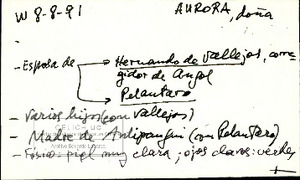 W 8-8-91 AURORA, doña
- Esposa de → Hernando de Vallejos, corre-
gidor de Angol
→ Pelantaro
- Varios hijos (con Vallejos)
- Madre de Antipangui (con Pelantaro)
- Físico: piel muy clara; ojos claros: verdes